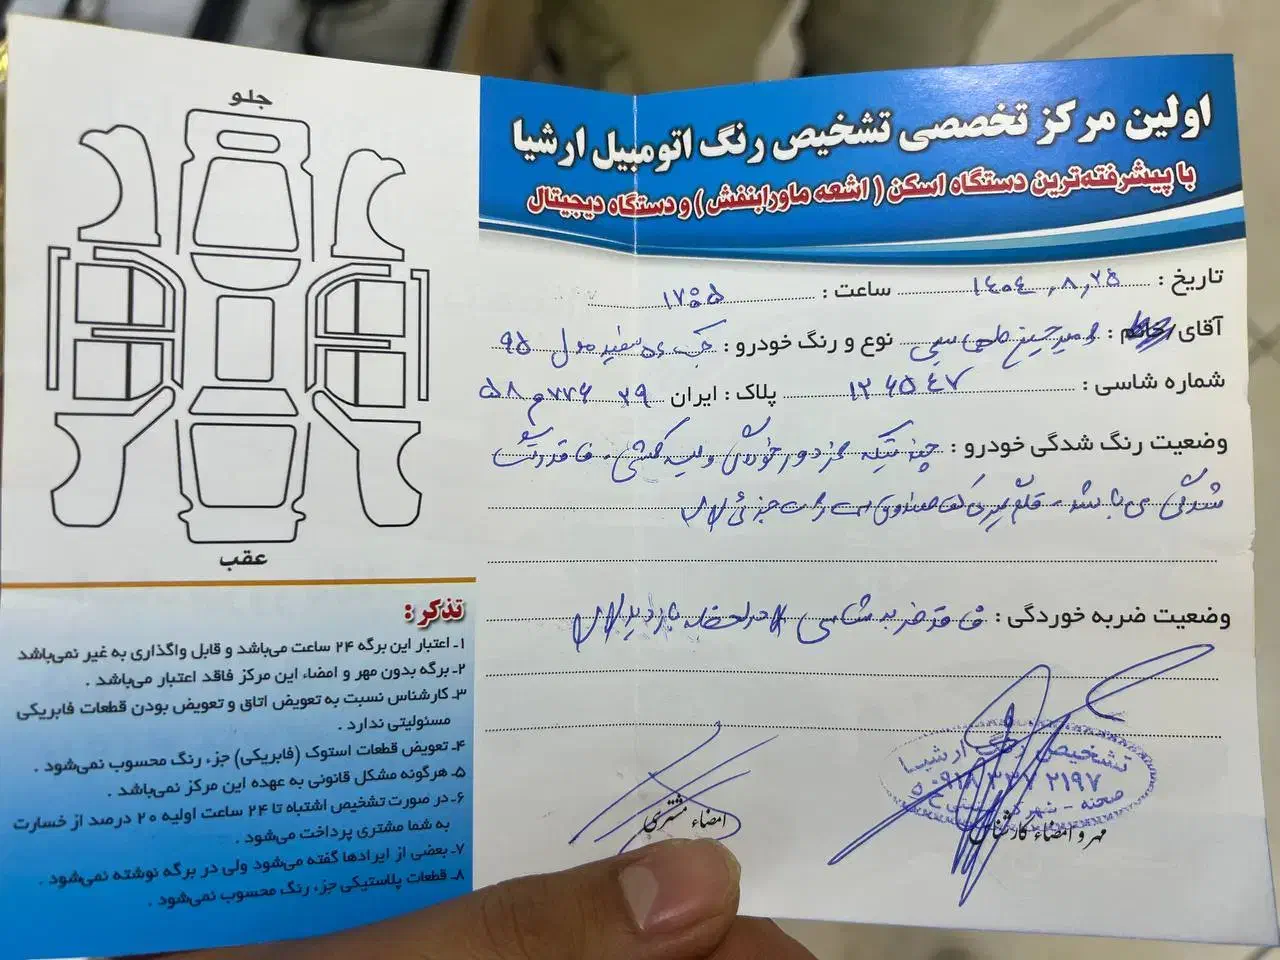 اولین مرکز تخصصی تشخیص رنگ اتومبیل ارشیا
با پیشرفته‌ترین دستگاه اسکن ( اشعه ماورابنفش ) و دستگاه دیجیتال
تاریخ : ۱۴۰۴,۸,۲۵ ساعت : ۱۷:۵۵
آقای/خانم : نوع و رنگ خودرو : جک s5 سفید مدل ۹۵
شماره شاسی : ۱۲۶۵۴۷ پلاک : ایران ۲۹ ۷۷۶م۵۸
وضعیت رنگ شدگی خودرو : چند تیکه خط و خش و لیسه گیری . فاقد رنگ
شدگی می باشد -
وضعیت ضربه خوردگی : فاقد ضربه شاسی در لحظه بازدید
مهر و امضاء کارشناس
تشخیص رنگ ارشیا
۰۹۱۸ ۳۳۷ ۲۱۹۷
امضاء مشتری
جلو
عقب
تذکر :
۱ـ اعتبار این برگه ۲۴ ساعت می‌باشد و قابل واگذاری به غیر نمی‌باشد
۲ـ برگه بدون مهر و امضاء این مرکز فاقد اعتبار می‌باشد .
۳ـ کارشناس نسبت به تعویض اتاق و تعویض بودن قطعات فابریکی
مسئولیتی ندارد .
۴ـ تعویض قطعات استوک (فابریکی) جزء رنگ محسوب نمی‌شود .
۵ـ هرگونه مشکل قانونی به عهده این مرکز نمی‌باشد .
۶ـ در صورت تشخیص اشتباه تا ۲۴ ساعت اولیه ۲۰ درصد از خسارت
به شما مشتری پرداخت می‌شود .
۷ـ بعضی از ایرادها گفته می‌شود ولی در برگه نوشته نمی‌شود .
۸ـ قطعات پلاستیکی جزء رنگ محسوب نمی‌شود .